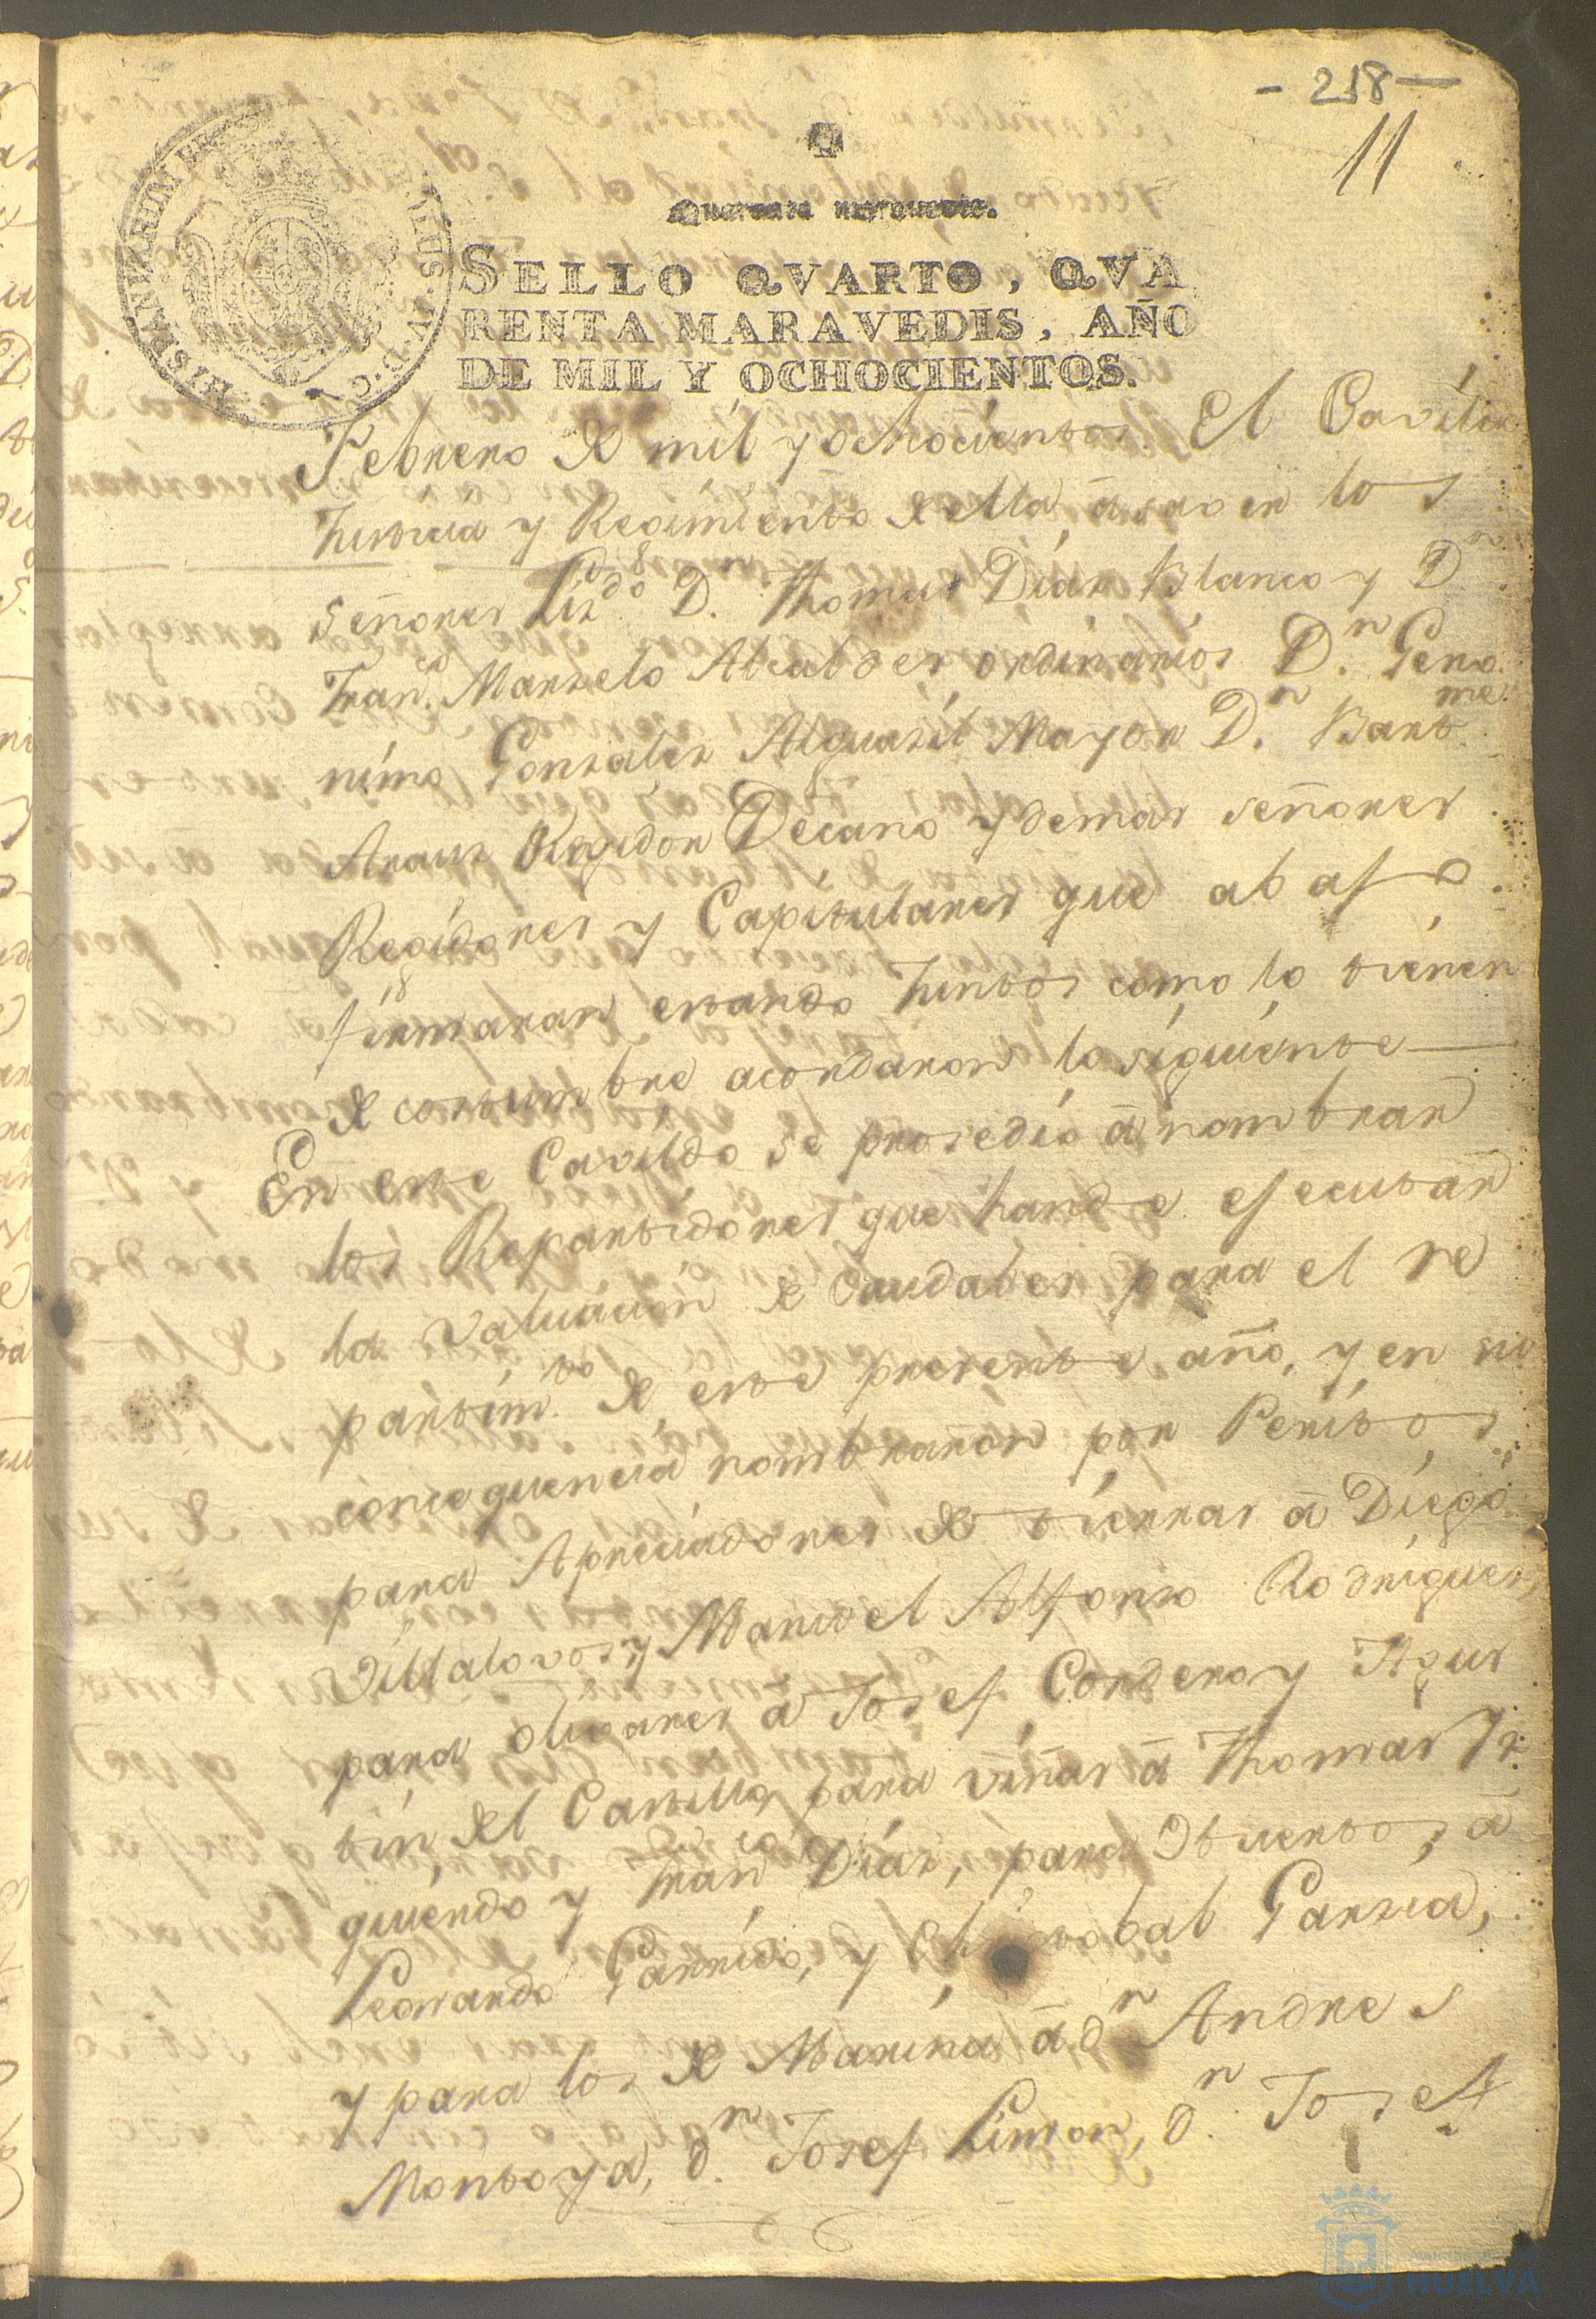 - 218 -
11
Quarenta maravedis.
SELLO QVARTO, QVA
RENTA MARAVEDIS, AÑO
DE MIL Y OCHOCIENTOS.
HISPANIARUM
Febrero de mil y ochocientos. El Cavildo
Justicia y Regimiento de ella á saver los
señores Lizdo. Dn. Thomas Diaz Blanco y Dn.
Franco. Marzelo Alcaldes ordinarios Dn. Gero
nimo Gonzales Alguazil Mayor Dn. Bartme.
Arauz Regidor Decano y demas señores
Regidores y Capitulares que abajo
firmaran estando Juntos como lo tienen
de costumbre acordaron lo siguiente
En este Cavildo se prosedió á nombrar
los Repartidores que hande ejecutar
la valuacion de Caudales para el re
partimto. de este presente año, y en su
consequencia nombraron por Peritos
para Apreciadores de tierras á Diego
Villalovos, y Manuel Alfonso Rodriguez,
para olivares á Josef Cordero y Agus
tin del Castillo, para viñas á Thomas Yz
quierdo y Franco. Diaz, para Huertos, á
Leonardo Garrido, y Christobal Garzia,
y para los de Marina á dn. Andres
Montoya, dn. Josef Limon, dn. Josef
HUELVA